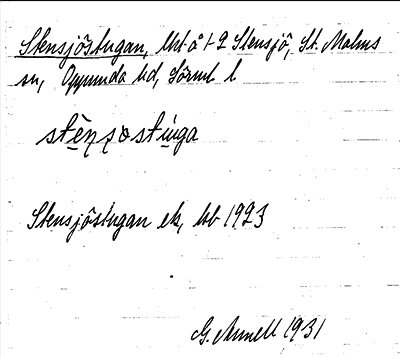 Stensjöstugan, lht å 1-2 Stensjö, St. Malms
sn, Oppunda hd, Sörml. l
stènʃostùga
Stensjöstugan ek, hb 1923
G. Annell 1931